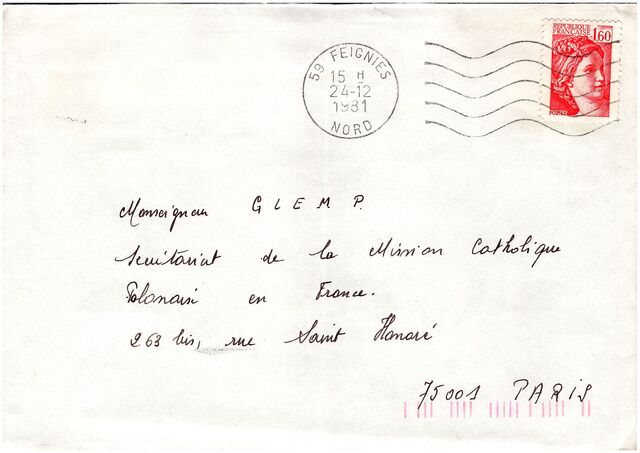 REPUBLIQUE FRANÇAISE 1,60
POSTES
59 FEIGNIES
15 H
24-12
1981
NORD
Monseigneur GLEMP.
Secrétariat de la Mission Catholique
Polonaise en France.
263 bis, rue Saint Honoré
75001 PARIS